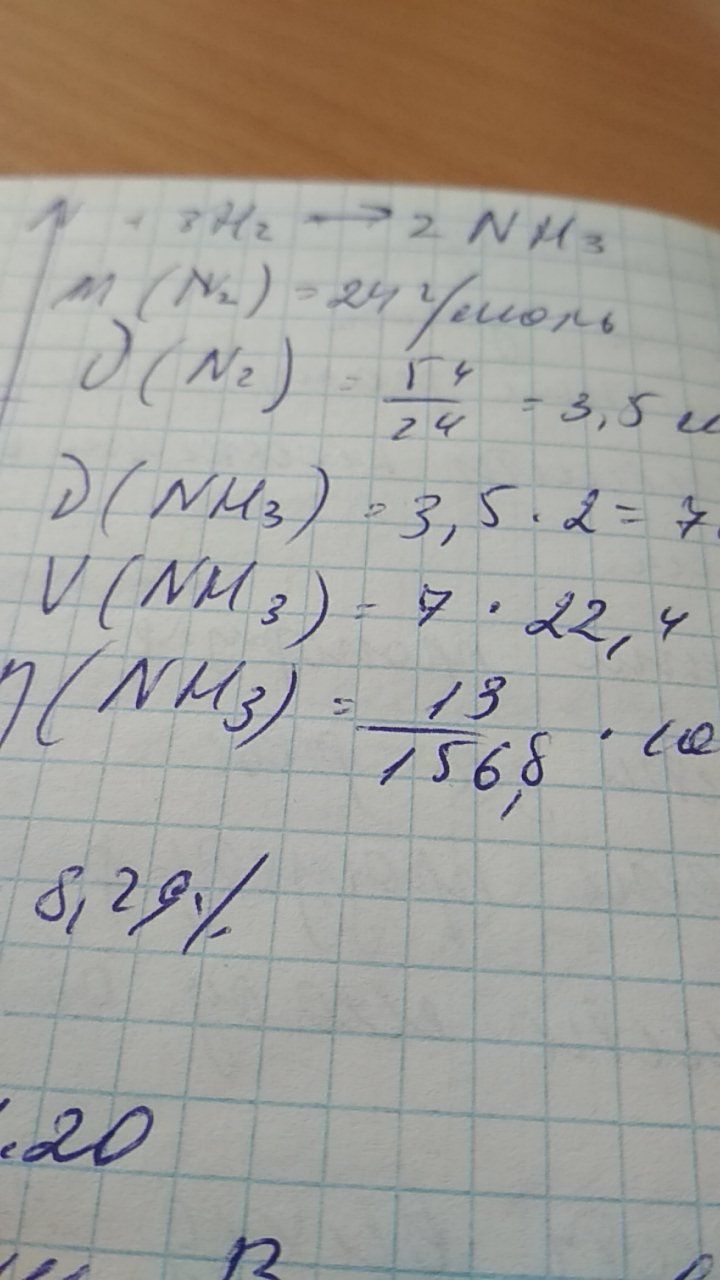 N + 3H₂ → 2 NH₃
M (N₂) = 24 г/моль
ν (N₂) = 54/24 = 3,5 м
ν (NH₃) = 3,5 · 2 = 7
V (NH₃) = 7 · 22,4
η (NH₃) = 13/156,8 · 10
8,29%
.20
В